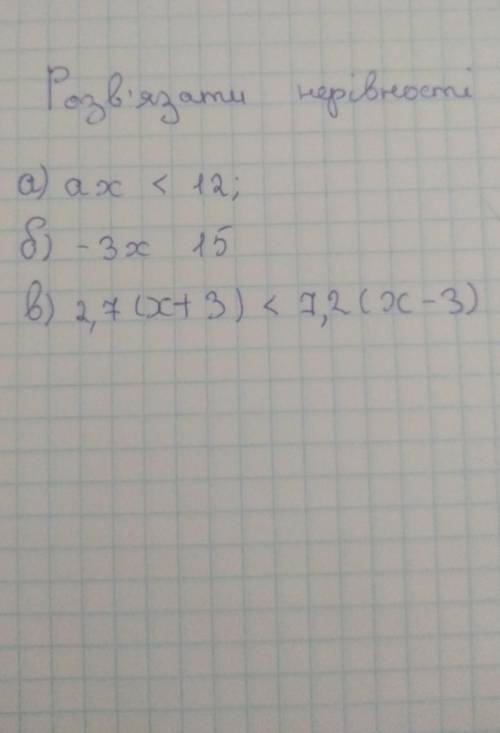 Розв'язати нерівності
а) ах < 12;
б) -3х 15
в) 2,7(х+3) < 7,2(х-3)